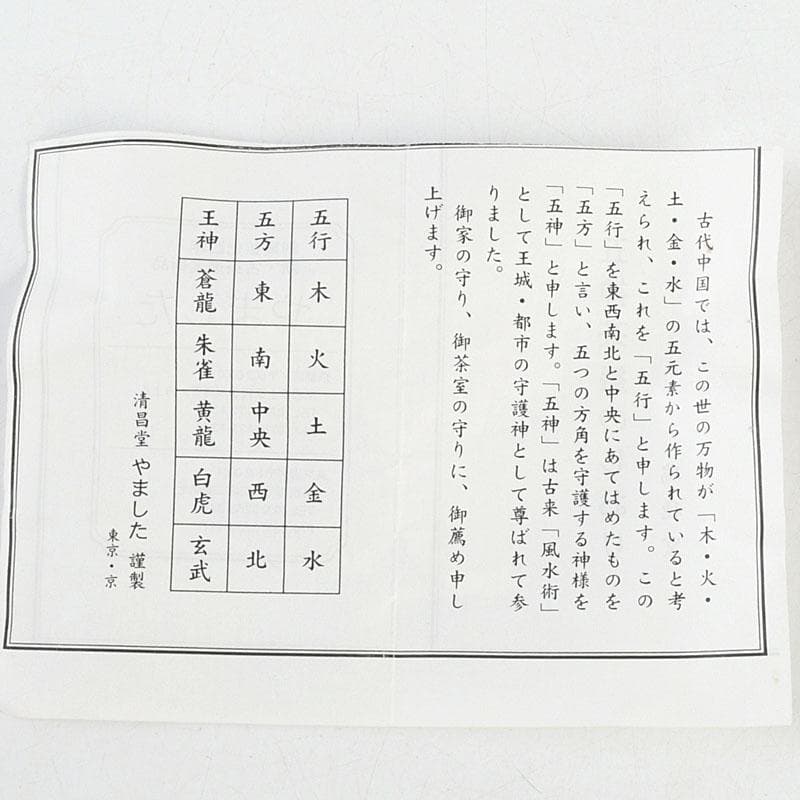 古代中国では、この世の万物が「木・火・
土・金・水」の五元素から作られていると考
えられ、これを「五行」と申します。この
「五行」を東西南北と中央にあてはめたものを
「五方」と言い、五つの方角を守護する神様を
「五神」と申します。「五神」は古来「風水術」
として王城・都市の守護神として尊ばれて参
りました。
御家の守り、御茶室の守りに、御薦め申し
上げます。
五行 木 火 土 金 水
五方 東 南 中央 西 北
王神 蒼龍 朱雀 黄龍 白虎 玄武
清昌堂 やました 謹製
東京・京